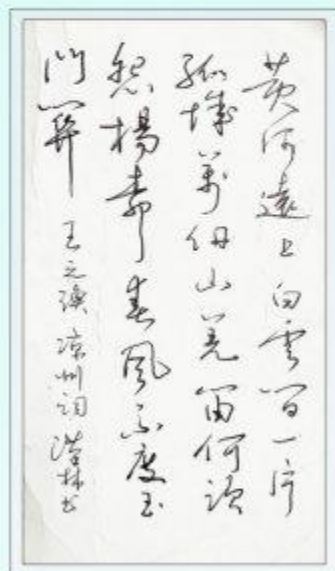 黄河遠上白雲間一片
孤城萬仞山羌笛何須
怨楊柳春風不度玉
門關 王之渙 涼州詞 林书